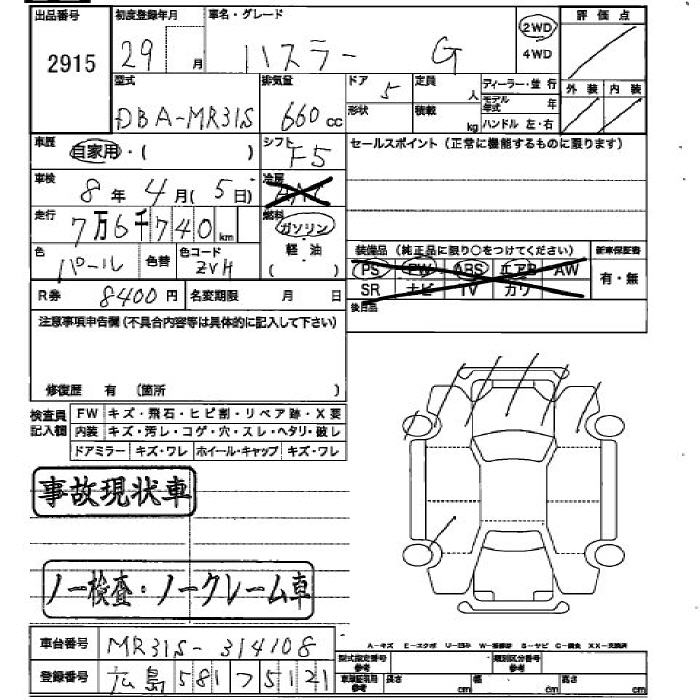 出品番号 初度登録年月 車名・グレード 2WD 評価点
2915 29 月 ハスラー G 4WD
型式 排気量 ドア 5 定員 人 ディーラー・並行 外装 内装
DBA-MR31S 660cc 形状 積載 kg モデル年式 年
ハンドル 左・右
車歴 自家用・( ) シフト F5 セールスポイント(正常に機能するものに限ります)
車検 8年 4月(5日) 冷房 AAC
走行 7万6千740km 燃料 ガソリン
軽油
( )
色 パール 色替 色コード ZVH
装備品(純正品に限り○をつけてください) 新車保証書
PS PW ABS エアB AW 有・無
SR ナビ TV カワ
R券 8400円 名変期限 月 日
後日品
注意事項申告欄(不具合内容等は具体的に記入して下さい)
修復歴 有 (箇所 )
検査員記入欄 FW キズ・飛石・ヒビ割・リペア跡・X要
内装 キズ・汚レ・コゲ・穴・スレ・ヘタリ・破レ
ドアミラー キズ・ワレ ホイール・キャップ キズ・ワレ
事故現状車
ノー検査・ノークレーム車
車台番号 MR31S-314108
A-キズ E-エクボ U-凹み W-補修跡 S-サビ C-腐食 XX-交換済
型式指定番号 参考 類別区分番号 参考
登録番号 広島 581 ツ 5121
車庫証明用 参考 長さ cm 幅 cm 高さ cm